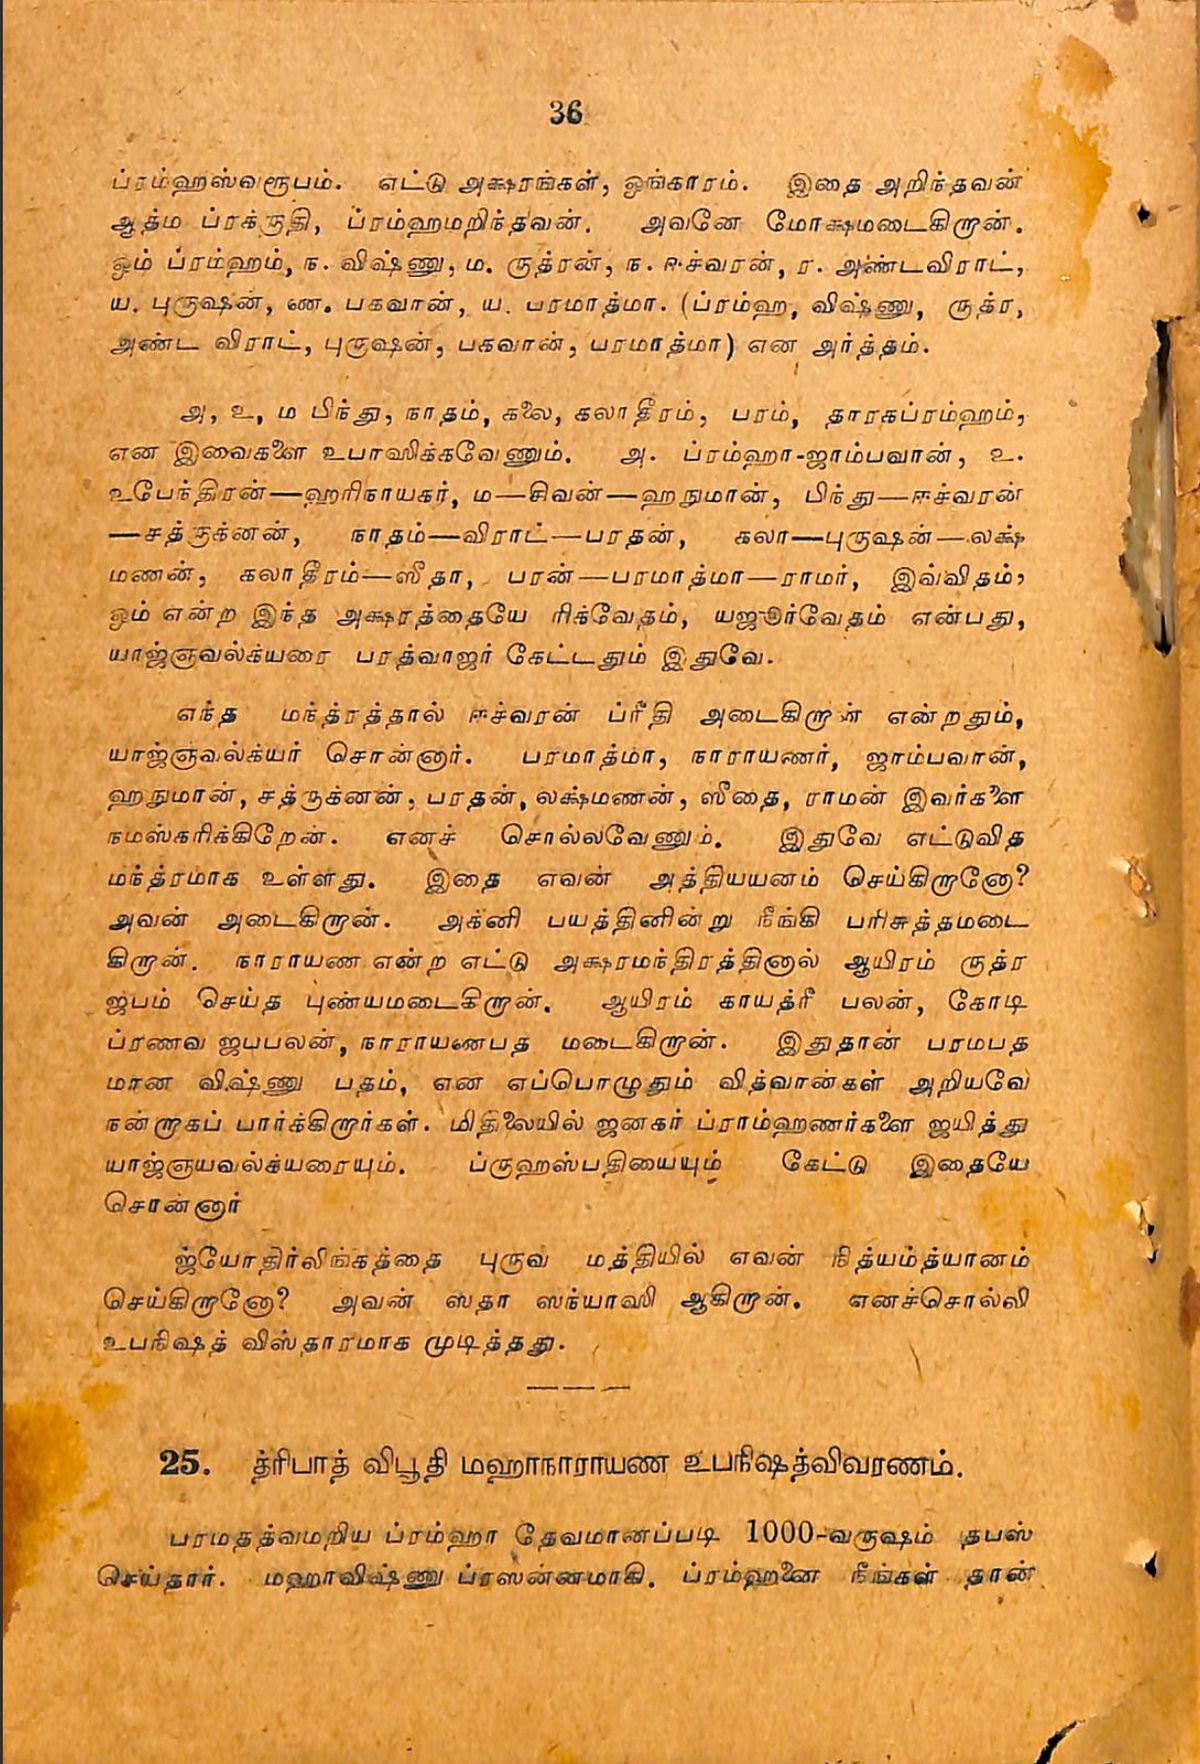 36
ப்ரம்ஹஸ்வரூபம். எட்டு அக்ஷரங்கள், ஓங்காரம். இதை அறிந்தவன்
ஆத்ம ப்ரக்ருதி, ப்ரம்ஹமறிந்தவன். அவனே மோக்ஷமடைகிறான்.
ஓம் ப்ரம்ஹம், ந. விஷ்ணு, ம. ருத்ரன், ந. ஈச்வரன், ர. அண்டவிராட்,
ய. புருஷன், ண. பகவான், ய. பரமாத்மா. (ப்ரம்ஹ, விஷ்ணு, ருத்ர,
அண்ட விராட், புருஷன், பகவான், பரமாத்மா) என அர்த்தம்.
அ, உ, ம பிந்து, நாதம், கலை, கலாதீரம், பரம், தாரகப்ரம்ஹம்,
என இவைகளை உபாஸிக்கவேணும். அ. ப்ரம்ஹா-ஜாம்பவான், உ.
உபேந்திரன்—ஹரிநாயகர், ம—சிவன்—ஹநுமான், பிந்து—ஈச்வரன்
—சத்ருக்னன், நாதம்—விராட்—பரதன், கலா—புருஷன்—லக்ஷ்
மணன், கலாதீரம்—ஸீதா, பரன்—பரமாத்மா—ராமர், இவ்விதம்,
ஓம் என்ற இந்த அக்ஷரத்தையே ரிக்வேதம், யஜூர்வேதம் என்பது,
யாஜ்ஞவல்க்யரை பரத்வாஜர் கேட்டதும் இதுவே.
எந்த மந்த்ரத்தால் ஈச்வரன் ப்ரீதி அடைகிறான் என்றதும்,
யாஜ்ஞ்வல்க்யர் சொன்னார். பரமாத்மா, நாராயணர், ஜாம்பவான்,
ஹநுமான், சத்ருக்னன், பரதன், லக்ஷ்மணன், ஸீதை, ராமன் இவர்களை
நமஸ்கரிக்கிறேன். எனச் சொல்லவேணும். இதுவே எட்டுவித
மந்த்ரமாக உள்ளது. இதை எவன் அத்தியயனம் செய்கிறானோ?
அவன் அடைகிறான். அக்னி பயத்தினின்று நீங்கி பரிசுத்தமடை
கிறான். நாராயண என்ற எட்டு அக்ஷரமந்திரத்தினால் ஆயிரம் ருத்ர
ஜபம் செய்த புண்யமடைகிறான். ஆயிரம் காயத்ரீ பலன், கோடி
ப்ரணவ ஜபபலன், நாராயணபத மடைகிறான். இதுதான் பரமபத
மான விஷ்ணு பதம், என எப்பொழுதும் வித்வான்கள் அறியவே
நன்றாகப் பார்க்கிறார்கள். மிதிலையில் ஜனகர் ப்ராம்ஹணர்களை ஜயித்து
யாஜ்ஞயவல்க்யரையும். ப்ருஹஸ்பதியையும் கேட்டு இதையே
சொன்னார்
ஜ்யோதிர்லிங்கத்தை புருவ மத்தியில் எவன் நித்யம்த்யானம்
செய்கிறானோ? அவன் ஸ்தா ஸந்யாஸி ஆகிறான். எனச்சொல்லி
உபநிஷத் விஸ்தாரமாக முடித்தது.
25. த்ரிபாத் விபூதி மஹாநாராயண உபநிஷத்விவரணம்.
பரமதத்வமறிய ப்ரம்ஹா தேவமானப்படி 1000-வருஷம் தபஸ்
செய்தார். மஹாவிஷ்ணு ப்ரஸன்னமாகி. ப்ரம்ஹனை நீங்கள் தான்